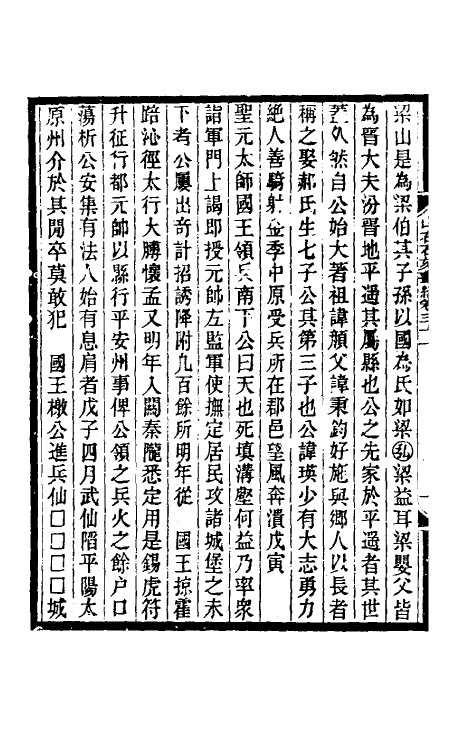 梁山是為梁伯其子孫以國為氏如梁弘梁益耳梁嬰父皆
為晉大夫汾晉地平遥其屬縣也公之先家於平遥者其世
葢久然自公始大著祖諱頠父諱秉鈞好施與鄉人以長者
稱之娶郝氏生七子公其第三子也公諱瑛少有大志勇力
絶人善騎射金季中原受兵所在郡邑望風奔潰戊寅
聖元太師國王領兵南下公曰天也死填溝壑何益乃率衆
詣軍門上謁即授元帥左監軍使撫定居民攻諸城堡之未
下者公屢出奇計招誘降附几百餘所明年從　國王掠霍
踣沁徑太行大膊懷孟又明年入闗秦隴悉定用是錫虎符
升征行都元帥以縣行平安州事俾公領之兵火之餘户口
蕩析公安集有法人始有息肩者戊子四月武仙陷平陽太
原州介於其閒卒莫敢犯　國王檄公進兵仙□□□□城